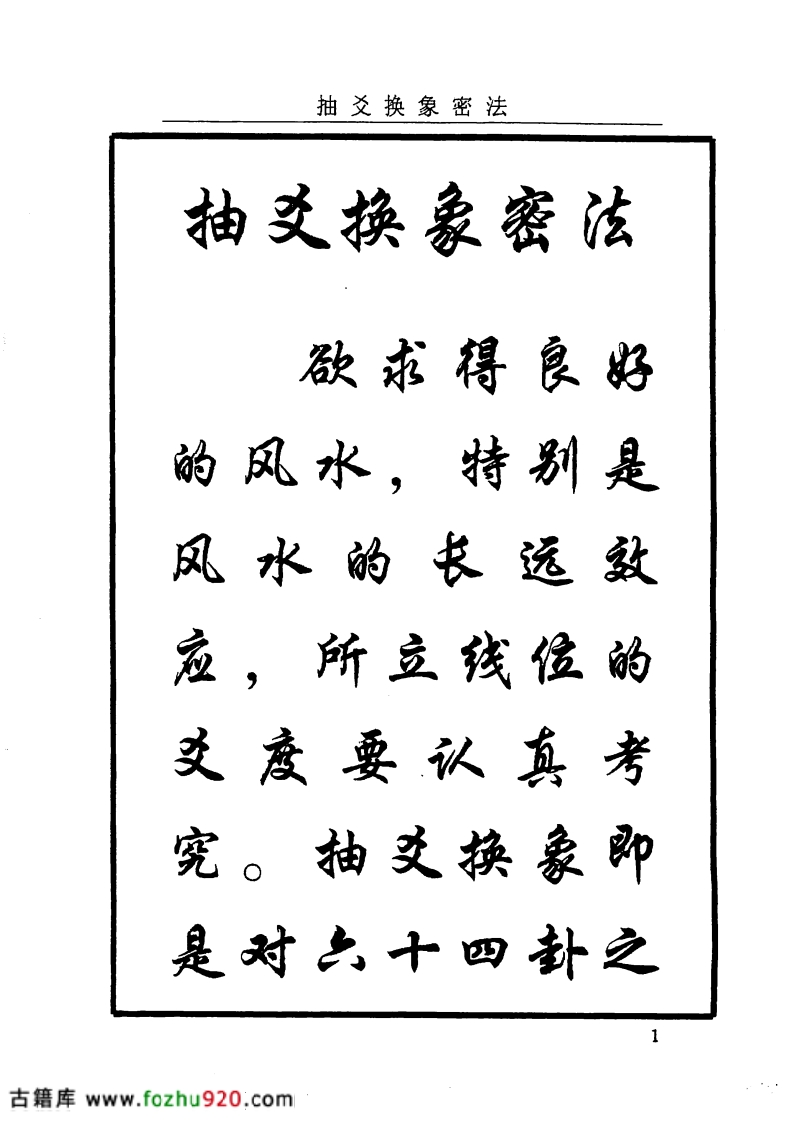 抽爻换象密法
抽爻换象密法
欲求得良好
的风水，特别是
风水的长远效
应，所立线位的
爻度要认真考
究。抽爻换象即
是对六十四卦之
1
古籍库 www.fozhu920.com